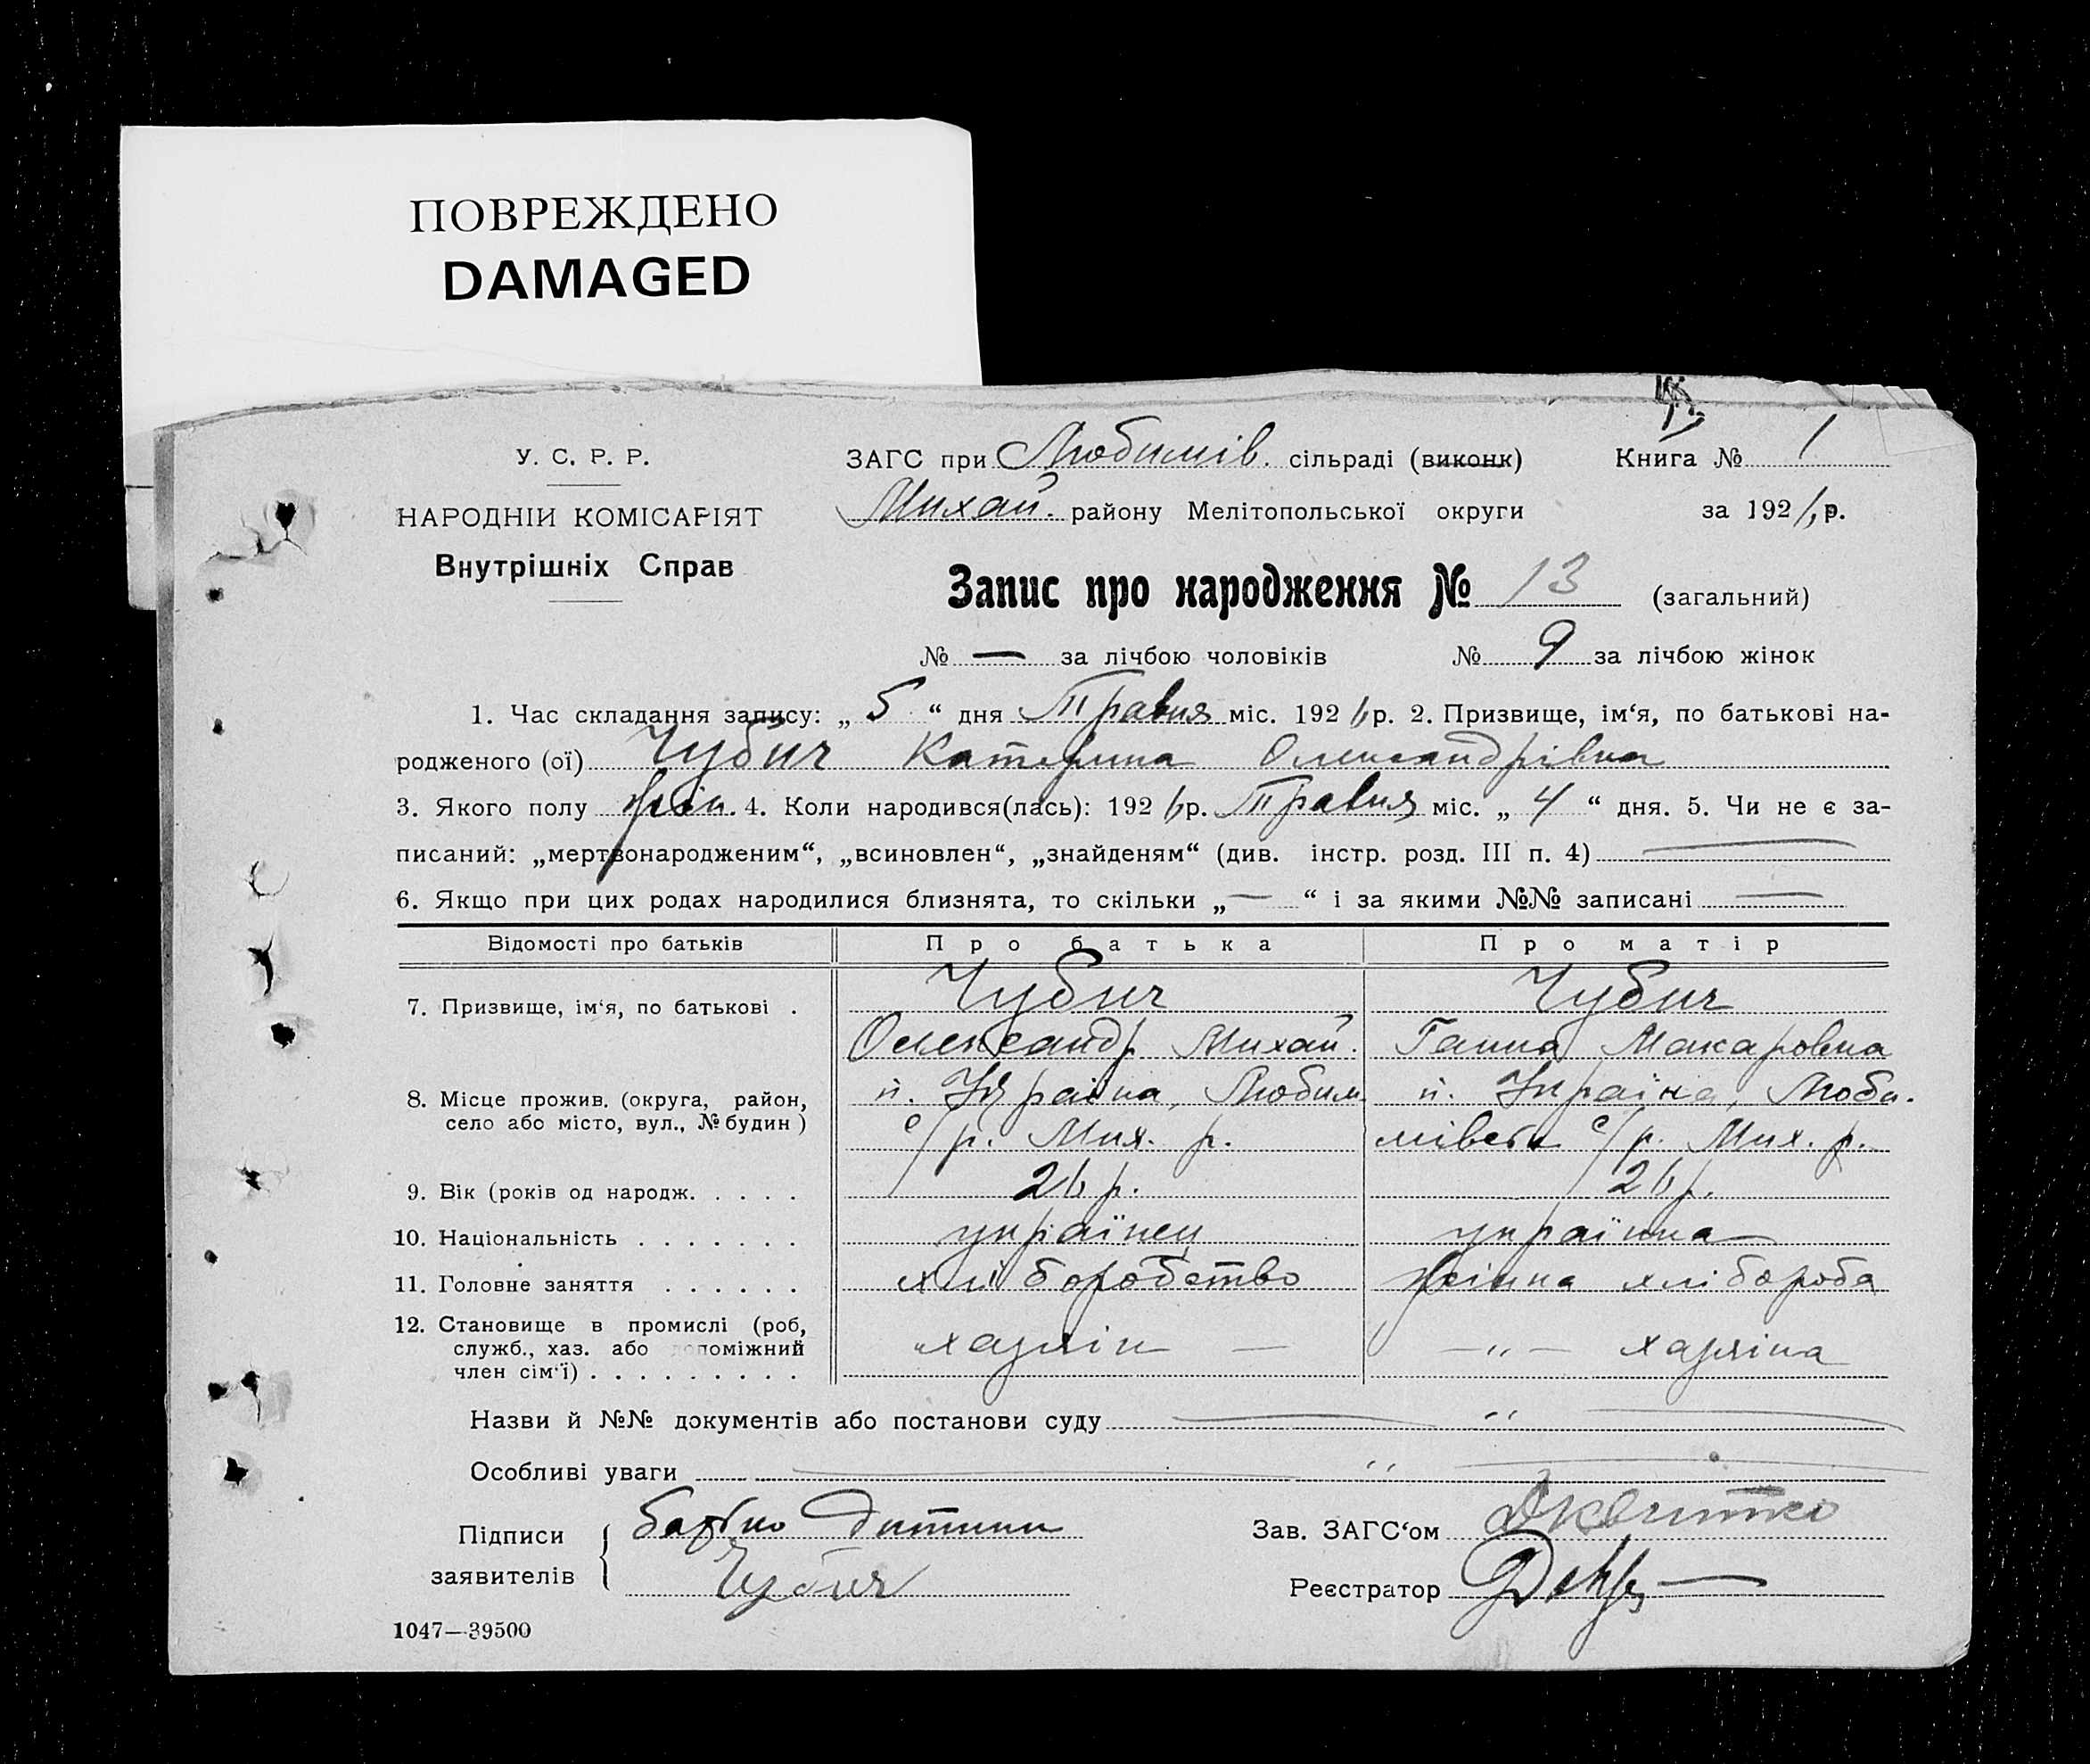 ПОВРЕЖДЕНО
DAMAGED
У. С. Р. Р.
НАРОДНІЙ КОМІСАРІЯТ
Внутрішніх Справ
ЗАГС при Любимів. сільраді (виконк) Книга № 1
Михай. району Мелітопольської округи за 1926 р.
Запис про народження № 13 (загальний)
№ — за лічбою чоловіків № 9 за лічбою жінок
1. Час складання запису: „ 5 “ дня Травня міс. 1926 р. 2. Призвище, ім‘я, по батькові на-
родженого (ої) Чубич Катерина Олександрівна
3. Якого полу жін. 4. Коли народився(лась): 1926 р. Травня міс. „ 4 “ дня. 5. Чи не є за-
писаний: „мертвонародженим“, „всиновлен“, „знайденям“ (див. інстр. розд. III п. 4) —
6. Якщо при цих родах народилися близнята, то скільки „ — “ і за якими №№ записані —
Відомості про батьків Про батька Про матір
7. Призвище, ім‘я, по батькові . Чубич Чубич
Олександр Михай. Ганна Макаровна
8. Місце прожив. (округа, район, п. Україна, Любим. п. Україна, Люби-
село або місто, вул., № будин ) с/р. Мих. р. мівськ с/р. Мих. р.
9. Вік (років од народж. . . . . 26 р. 26 р.
10. Національність . . . . . . . українец українка
11. Головне заняття . . . . . . хліборобство жінка хлібороба
12. Становище в промислі (роб,
служб., хаз. або допоміжний хазяін — — „ — хазяіна
член сім‘ї) . . . . . . . . .
Назви й №№ документів або постанови суду — „ —
Особливі уваги — „ —
Підписи заявителів { батько дитини
Чубич
Зав. ЗАГС‘ом
Реєстратор
1047—39500